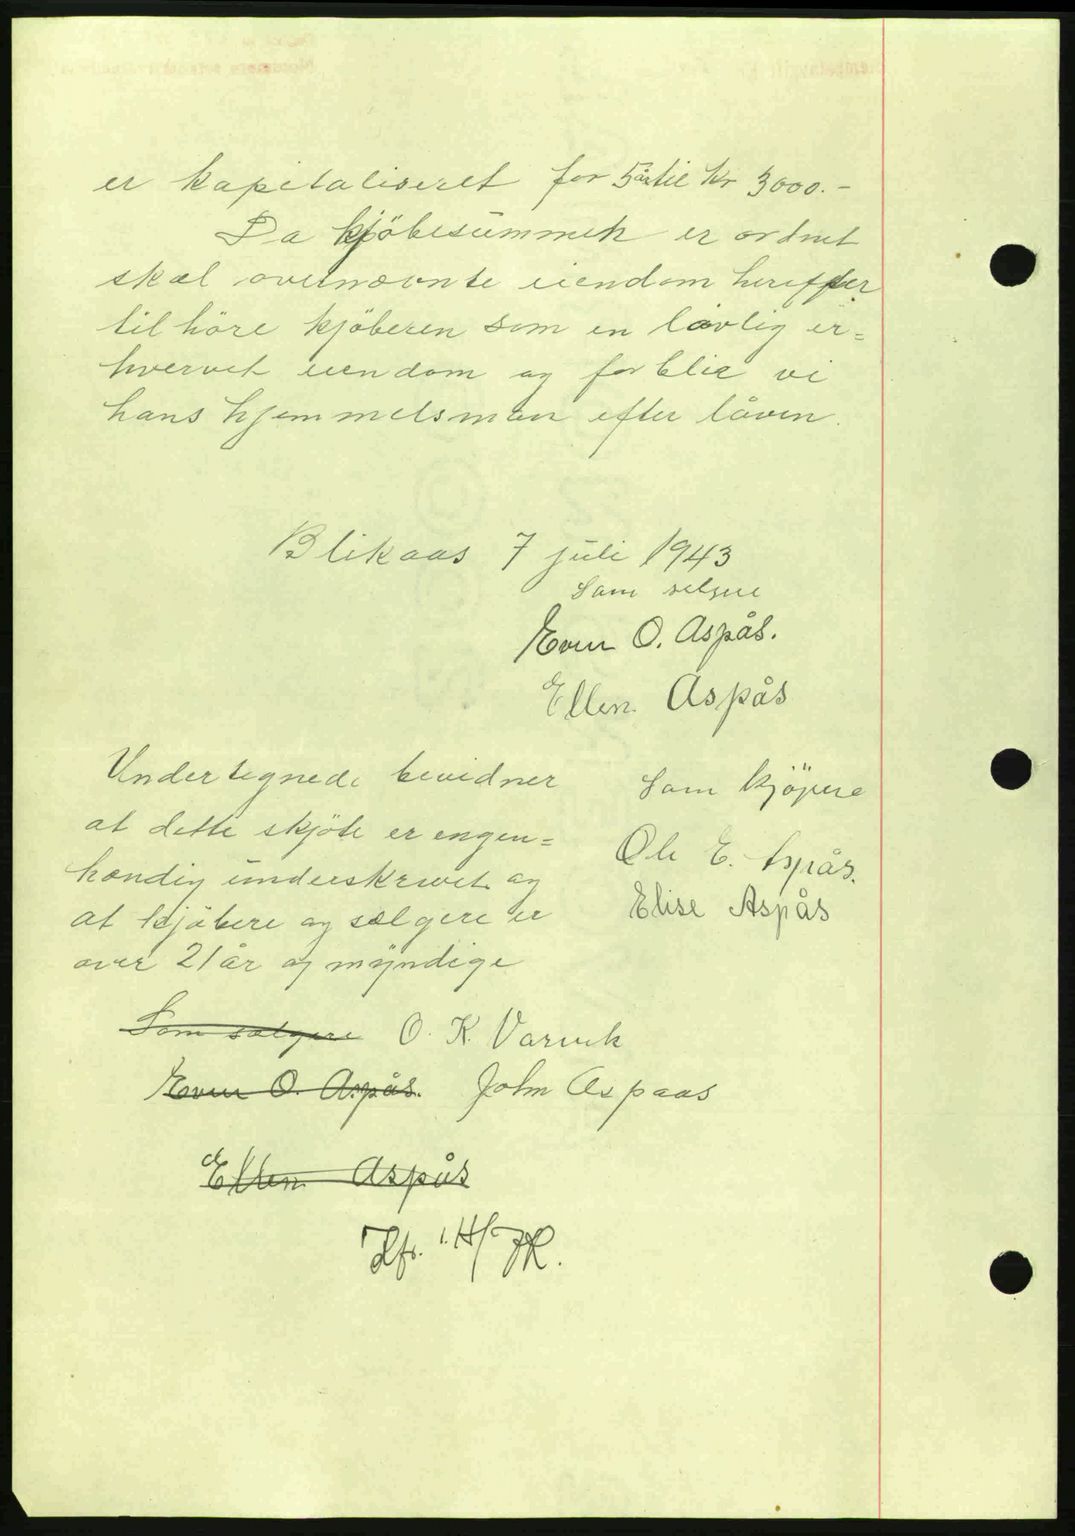 er kapitaliseret for 5 år til kr 3000.-
Da kjöbesummen er ordnet
skal ovennævnte eiendom herefter
tilhöre kjöberen som en lovlig er=
hvervet eiendom og forblir vi
hans hjemmelsmæn efter låven.
Blikaas 7 juli 1943
Som selgere
Even O. Aspås.
Ellen Aspås
Undertegnede bevidner
at dette skjöte er engen=
hændig underskrevet og
at kjöbere og sælgere er
over 21 år og myndige
Som kjöpere
Ole E. Aspås.
Elise Aspås
Som sælgere O. K. Varvik
Even O. Aspås. John Aspaas
Ellen Aspås